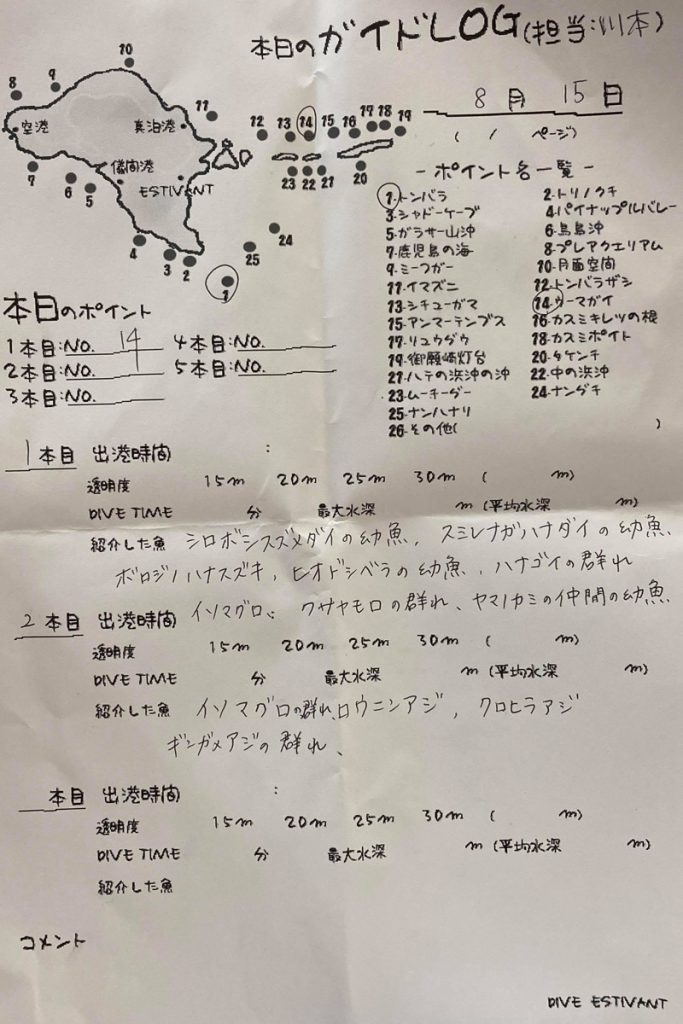 本日のガイドLOG(担当:川本)
8月 15日
( / ページ)
10
8 9
空港 真泊港 11 12 13 14 15 16 17 18 19
儀間港
7 6 5 ESTIVANT 23 22 21 20
4 3 2 25 24
1
-ポイント名一覧-
1.トンバラ 2.トリノクチ
3.シャドーケーブ 4.パイナップルバレー
5.ガラサー山沖 6.鳥島沖
7.鹿児島の海 8.プレアクエリアム
9.ミーフガー 10.月面空間
11.イマズニ 12.トンバラザシ
13.シチューガマ 14.ウーマガイ
15.アンマーテンプス 16.カスミキレツの根
17.リュウダウ 18.カスミポイト
19.御願崎灯台 20.タケンチ
21.ハテの浜沖の沖 22.中の浜沖
23.ムーチーグー 24.ナンダキ
25.ナンハナリ
26.その他( )
本日のポイント
1本目:NO. 14 4本目:NO.
2本目:NO. 1 5本目:NO.
3本目:NO.
1本目 出港時間 :
透明度 15m 20m 25m 30m ( m)
DIVE TIME 分 最大水深 m (平均水深 m)
紹介した魚 シロボシスズメダイの幼魚、スミレナガハナダイの幼魚、
ボロジノハナスズキ、ヒオドシベラの幼魚、ハナゴイの群れ
イソマグロ、クサヤモロの群れ、ヤマノカミの仲間の幼魚
2本目 出港時間
透明度 15m 20m 25m 30m ( m)
DIVE TIME 分 最大水深 m (平均水深 m)
紹介した魚 イソマグロの群れ、ロウニンアジ、クロヒラアジ
ギンガメアジの群れ、
本目 出港時間 :
透明度 15m 20m 25m 30m ( m)
DIVE TIME 分 最大水深 m (平均水深 m)
紹介した魚
コメント
DIVE ESTIVANT